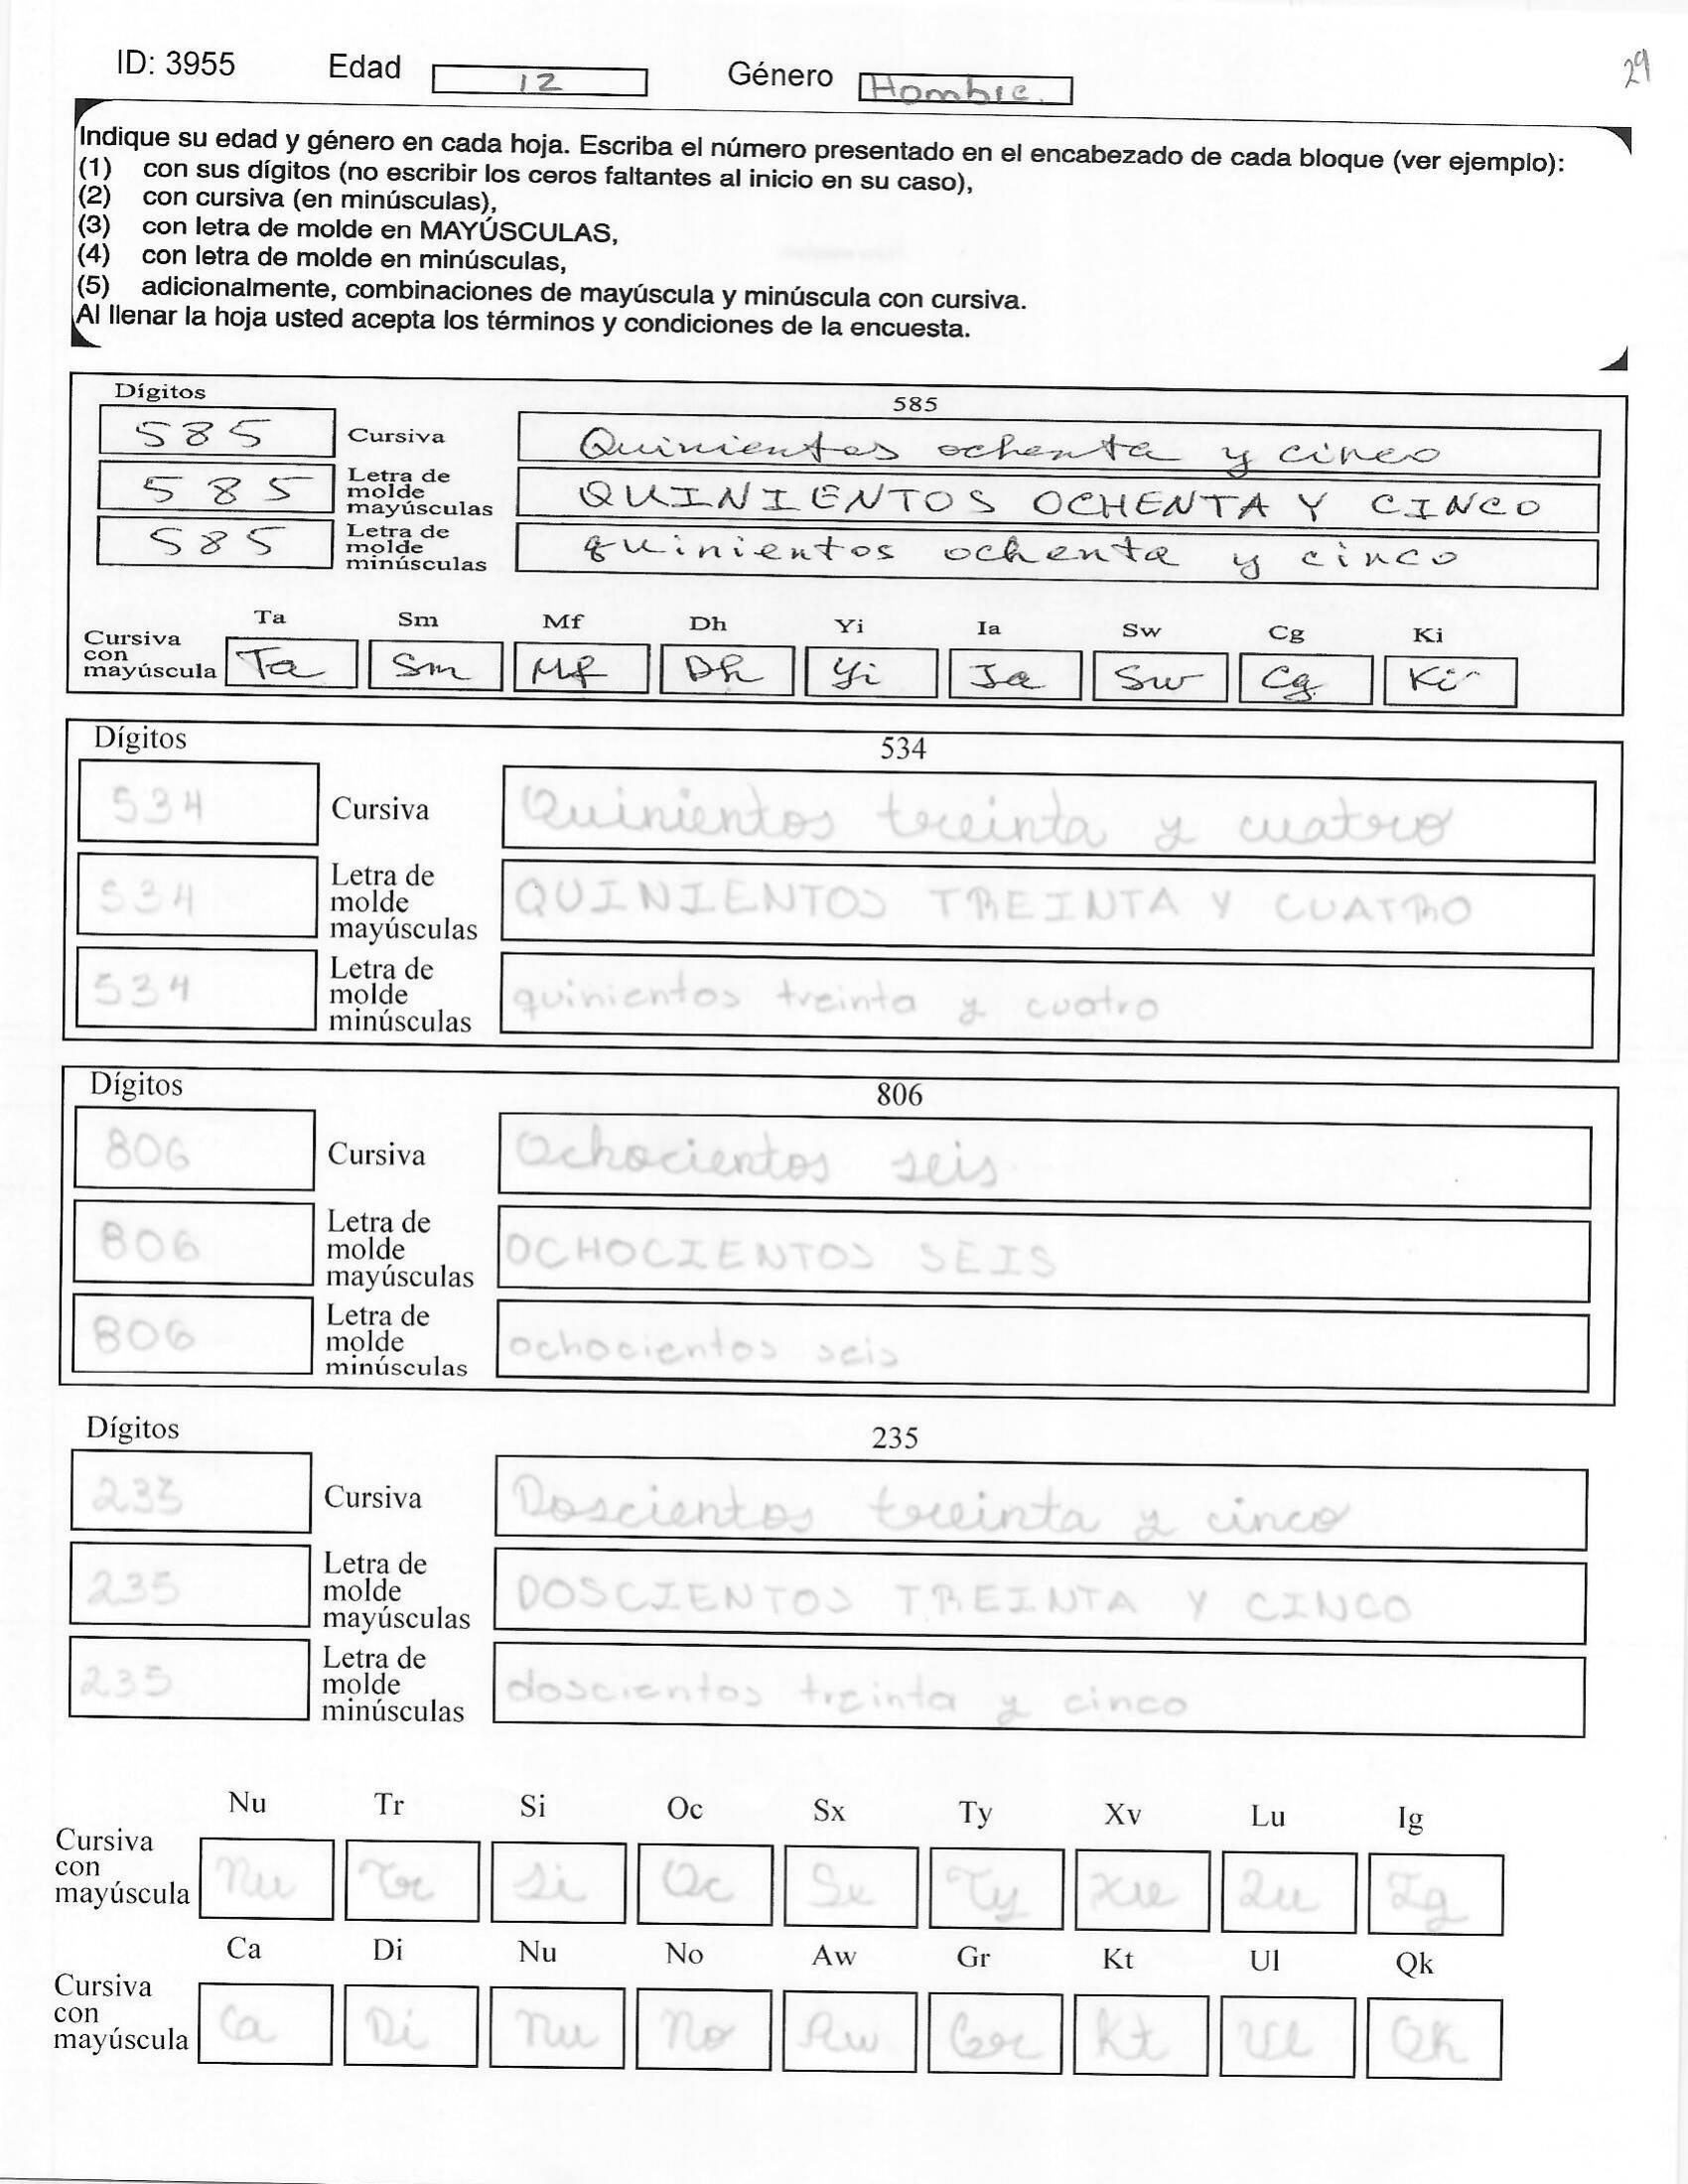 ID: 3955 Edad 12 Género Hombre. 29
Indique su edad y género en cada hoja. Escriba el número presentado en el encabezado de cada bloque (ver ejemplo):
(1) con sus dígitos (no escribir los ceros faltantes al inicio en su caso),
(2) con cursiva (en minúsculas),
(3) con letra de molde en MAYÚSCULAS,
(4) con letra de molde en minúsculas,
(5) adicionalmente, combinaciones de mayúscula y minúscula con cursiva.
Al llenar la hoja usted acepta los términos y condiciones de la encuesta.
Dígitos 585
585 Cursiva Quinientos ochenta y cinco
585 Letra de molde mayúsculas QUINIENTOS OCHENTA Y CINCO
585 Letra de molde minúsculas quinientos ochenta y cinco
Ta Sm Mf Dh Yi Ia Sw Cg Ki
Cursiva con mayúscula Ta Sm Mf Dh Yi Ia Sw Cg Ki
Dígitos 534
534 Cursiva Quinientos treinta y cuatro
534 Letra de molde mayúsculas QUINIENTOS TREINTA Y CUATRO
534 Letra de molde minúsculas quinientos treinta y cuatro
Dígitos 806
806 Cursiva Ochocientos seis
806 Letra de molde mayúsculas OCHOCIENTOS SEIS
806 Letra de molde minúsculas ochocientos seis
Dígitos 235
235 Cursiva Doscientos treinta y cinco
235 Letra de molde mayúsculas DOSCIENTOS TREINTA Y CINCO
235 Letra de molde minúsculas doscientos treinta y cinco
Nu Tr Si Oc Sx Ty Xv Lu Ig
Cursiva con mayúscula Nu Tr Si Oc Sx Ty Xv Lu Ig
Ca Di Nu No Aw Gr Kt Ul Qk
Cursiva con mayúscula Ca Di Nu No Aw Gr Kt Ul Qk